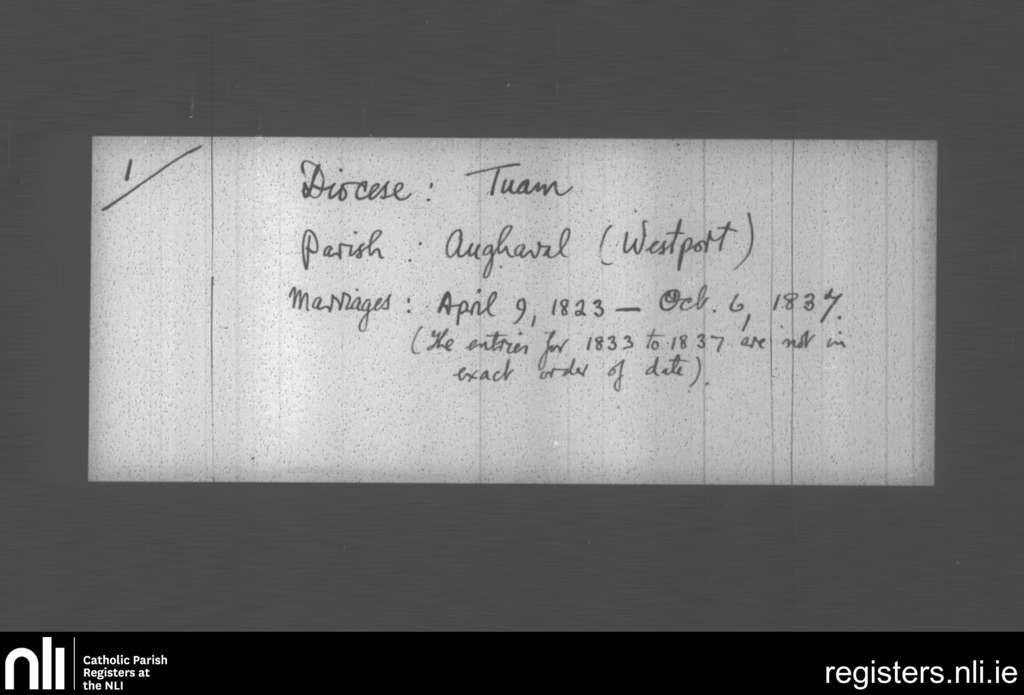 1/
Diocese: Tuam
Parish: Aughaval (Westport)
Marriages: April 9, 1823 — Oct. 6, 1837.
(The entries for 1833 to 1837 are not in
exact order of date).
nli
Catholic Parish
Registers at
the NLI
registers.nli.ie